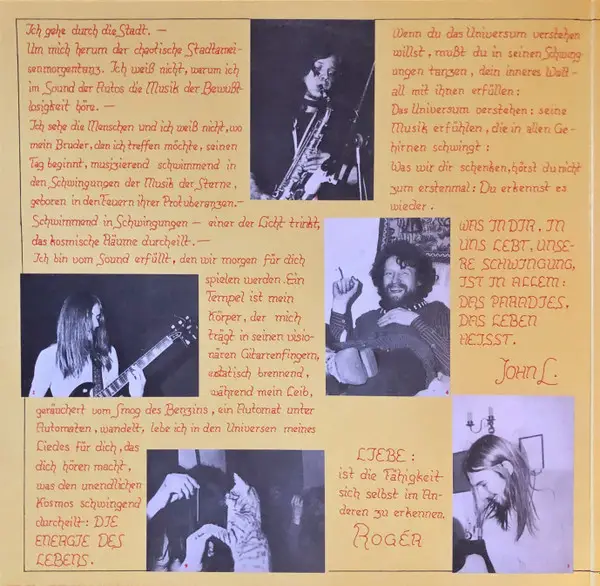 Ich gehe durch die Stadt. —
Um mich herum der chaotische Stadtamei-
senmorgentanz. Ich weiß nicht, warum ich
im Sound der Autos die Musik der Bewußt-
losigkeit höre. —
Ich sehe die Menschen und ich weiß nicht, wo
mein Bruder, den ich treffen möchte, seinen
Tag beginnt, musizierend schwimmend in
den Schwingungen der Musik der Sterne,
geboren in den Feuern ihrer Protuberanzen.—
Schwimmend in Schwingungen — einer der Licht trinkt,
das kosmische Räume durcheilt. —
Ich bin vom Sound erfüllt, den wir morgen für dich
spielen werden. Ein
Tempel ist mein
Körper, der mich
trägt in seinen visio-
nären Gitarrenfingern,
extatisch brennend,
während mein Leib,
geräuchert vom Smog des Benzins, ein Automat unter
Automaten, wandelt, lebe ich in den Universen meines
Liedes für dich, das
dich hören macht,
was den unendlichen
Kosmos schwingend
durcheilt: DIE
ENERGIE DES
LEBENS.
Wenn du das Universum verstehen
willst, mußt du in seinen Schwing
ungen tanzen, dein inneres Welt-
all mit ihnen erfüllen:
Das Universum verstehen: seine
Musik erfühlen, die in allen Ge-
hirnen schwingt:
Was wir dir schenken, hörst du nicht
zum erstenmal: Du erkennst es
wieder.
WAS IN DIR, IN
UNS LEBT, UNSE-
RE SCHWINGUNG,
IST IN ALLEM:
DAS PARADIES,
DAS LEBEN
HEISST.
JOHN L.
LIEBE:
ist die Fähigkeit
sich selbst im An-
deren zu erkennen.
ROGÉR